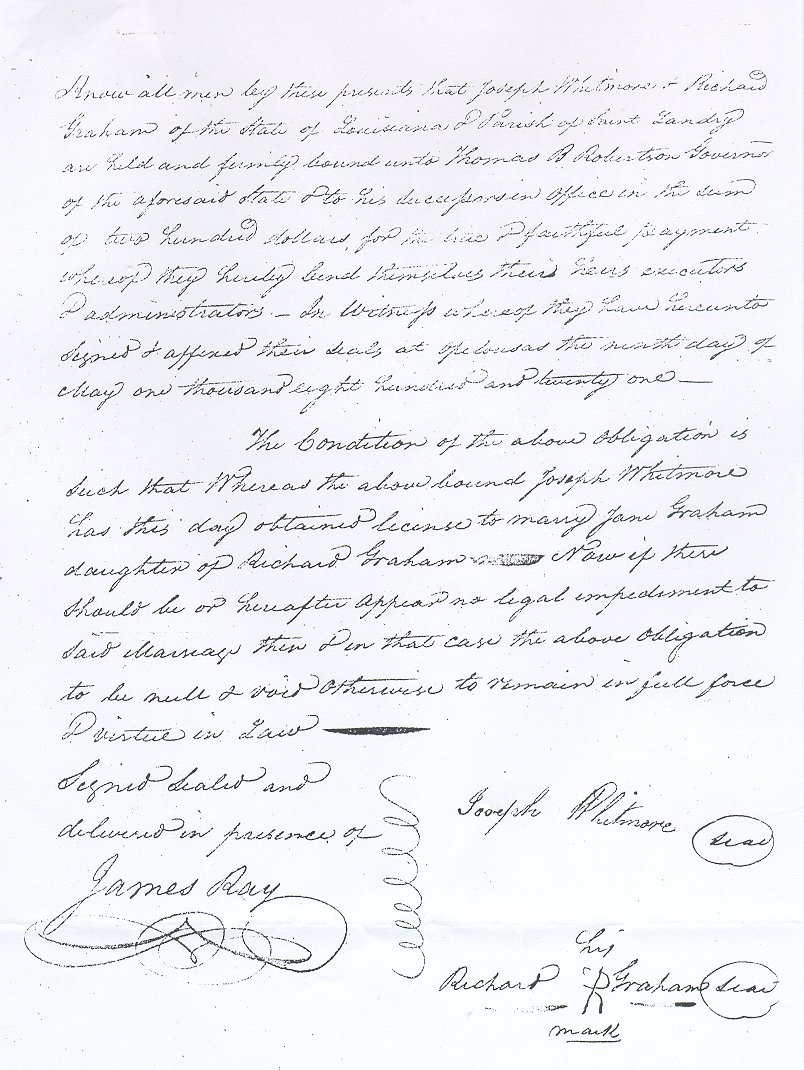 Know all men by these presents that Joseph Whitmore & Richard
Graham of the State of Louisiana & Parish of Saint Landry
are held and firmly bound unto Thomas B Robertson Governor
of the aforesaid State & to his successors in office in the sum
of two hundred dollars, for the true & faithful payment
whereof they hereby bend themselves their heirs executors
& administrators – In Witness whereof they have hereunto
Signed & affixed their seals at Opelousas the ninth day of
May one thousand eight hundred and twenty one —
The Condition of the above obligation is
such that Whereas the above bound Joseph Whitmore
has this day obtained license to marry Jane Graham
daughter of Richard Graham Now if there
should be or hereafter appear no legal impediment to
said Marriage then & in that case the above obligation
to be null & void otherwise to remain in full force
& virtue in Law —
Signed Sealed and
delivered in presence of
Joseph Whitmore seal
James Ray
his
Richard R Graham seal
mark